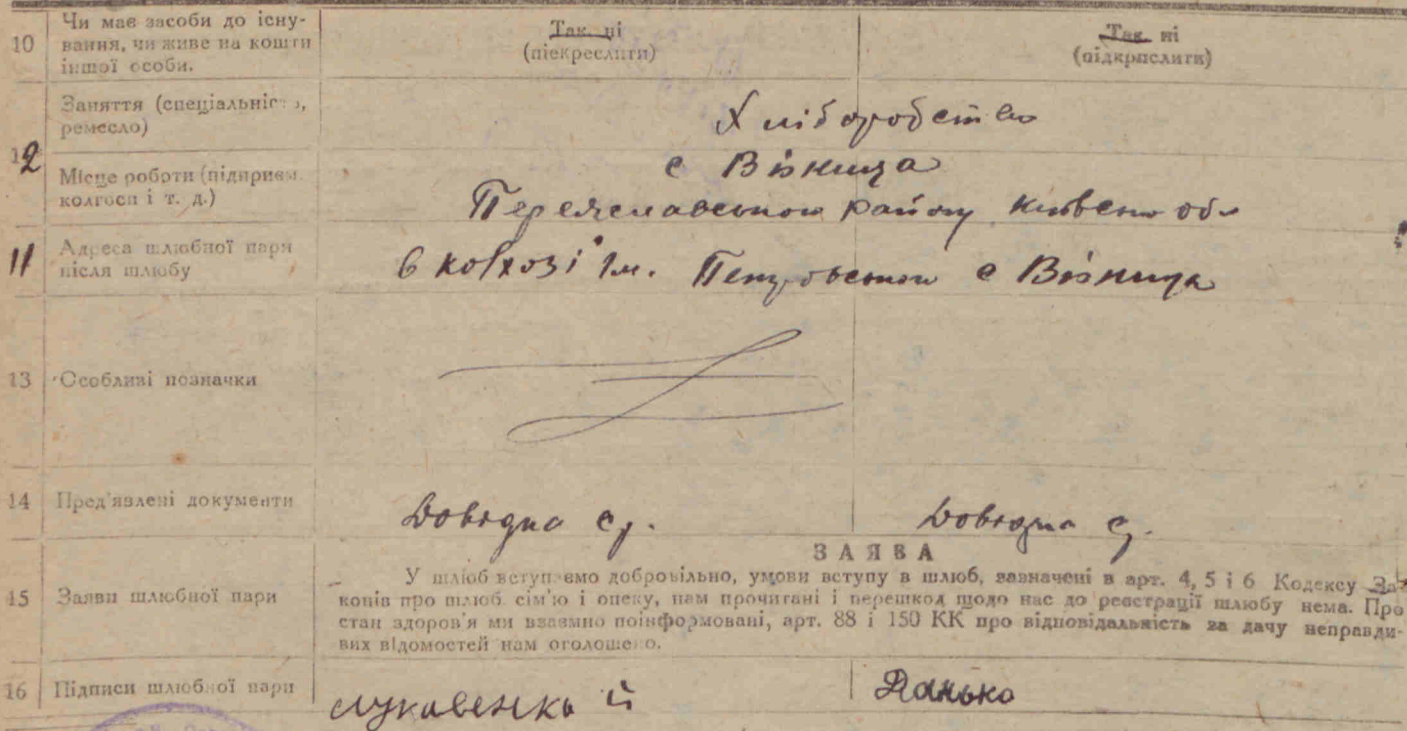 10 Чи має засоби до існу-
вання, чи живе на кошти
іншої особи.
Так. ні
(піекреслити)
Так. ні
(підкрислити)
Заняття (спеціальність,
ремесло)
Хліборобство
12 Місце роботи (підприєм.
колгосп і т. д.)
с Візниця
Переяславського району Київської обл
11 Адреса шлюбної пари
після шлюбу
в колхозі ім. Петровського с Візниця
13 Особливі позначки
14 Пред'явлені документи
Довідка с/.
Довідка с.
ЗАЯВА
15 Заяви шлюбної пари
У шлюб вступаємо добровільно, умови вступу в шлюб, зазначені в арт. 4, 5 і 6 Кодексу За-
конів про шлюб, сім'ю і опеку, нам прочитані і перешкод щодо нас до реєстрації шлюбу нема. Про
стан здоров'я ми взаємно поінформовані, арт. 88 і 150 КК про відповідальність за дачу неправди-
вих відомостей нам оголошено.
16 Підписи шлюбної пари
лукавенко й
Данько